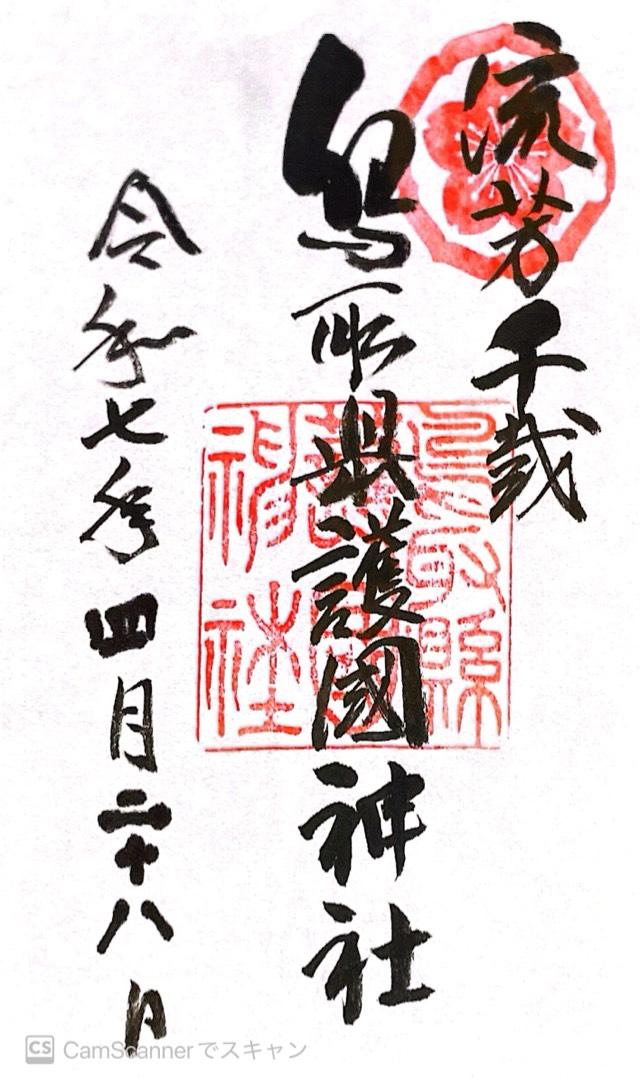 流芳千載
鳥取県護國神社
鳥取縣
護國
神社
令和七年四月二十八日
CS CamScannerでスキャン